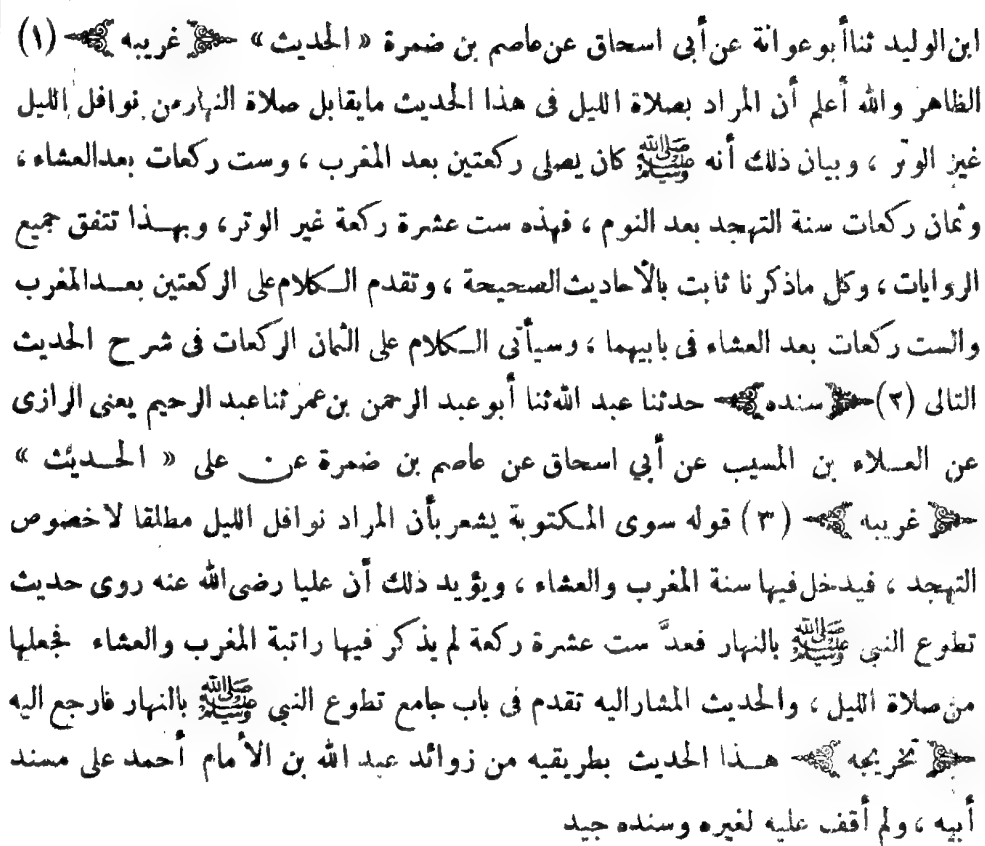 ابن الوليد ثنا أبو عوانة عن أبى اسحاق عن عاصم بن ضمرة « الحديث » ﴿ غريبه ﴾ (١)
الظاهر والله أعلم أن المراد بصلاة الليل فى هذا الحديث مايقابل صلاة النهار من نوافل الليل
غير الوتر ، وبيان ذلك أنه ﷺ كان يصلى ركعتين بعد المغرب ، وست ركعات بعد العشاء ،
وثمان ركعات سنة التهجد بعد النوم ، فهذه ست عشرة ركعة غير الوتر ، وبهـذا تتفق جميع
الروايات ، وكل ماذكرنا ثابت بالأحاديث الصحيحة ، وتقدم الـكلام على الركعتين بعـد المغرب
والست ركعات بعد العشاء فى بابيهما ، وسيأتى الـكلام على الثمان الركعات فى شرح الحديث
التالى (٢) ﴿ سنده ﴾ حدثنا عبد الله ثنا أبو عبد الرحمن بن عمر ثنا عبد الرحيم يعنى الرازى
عن العـلاء بن المسيب عن أبي اسحاق عن عاصم بن ضمرة عن على « الحـديث »
﴿ غريبه ﴾ (٣) قوله سوى المـكتوبة يشعر بأن المراد نوافل الليل مطلقا لاخصوص
التهجد ، فيدخل فيها سنة المغرب والعشاء ، ويؤيد ذلك أن عليا رضى الله عنه روى حديث
تطوع النبى ﷺ بالنهار فعدَّ ست عشرة ركعة لم يذكر فيها راتبة المغرب والعشاء فجعلها
من صلاة الليل ، والحديث المشار اليه تقدم فى باب جامع تطوع النبي ﷺ بالنهار فارجع اليه
﴿ تخريجه ﴾ هـذا الحديث بطريقيه من زوائد عبد الله بن الأمام أحمد على مسند
أبيه ، ولم أقف عليه لغيره وسنده جيد